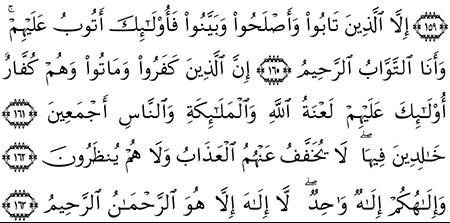 ﴿١٥٩﴾ إِلَّا ٱلَّذِينَ تَابُوا۟ وَأَصْلَحُوا۟ وَبَيَّنُوا۟ فَأُو۟لَـٰٓئِكَ أَتُوبُ عَلَيْهِمْ ۚ
وَأَنَا ٱلتَّوَّابُ ٱلرَّحِيمُ ﴿١٦٠﴾ إِنَّ ٱلَّذِينَ كَفَرُوا۟ وَمَاتُوا۟ وَهُمْ كُفَّارٌ
أُو۟لَـٰٓئِكَ عَلَيْهِمْ لَعْنَةُ ٱللَّهِ وَٱلْمَلَـٰٓئِكَةِ وَٱلنَّاسِ أَجْمَعِينَ ﴿١٦١﴾
خَـٰلِدِينَ فِيهَا ۖ لَا يُخَفَّفُ عَنْهُمُ ٱلْعَذَابُ وَلَا هُمْ يُنظَرُونَ ﴿١٦٢﴾
وَإِلَـٰهُكُمْ إِلَـٰهٌ وَٰحِدٌ ۖ لَّا إِلَـٰهَ إِلَّا هُوَ ٱلرَّحْمَـٰنُ ٱلرَّحِيمُ ﴿١٦٣﴾